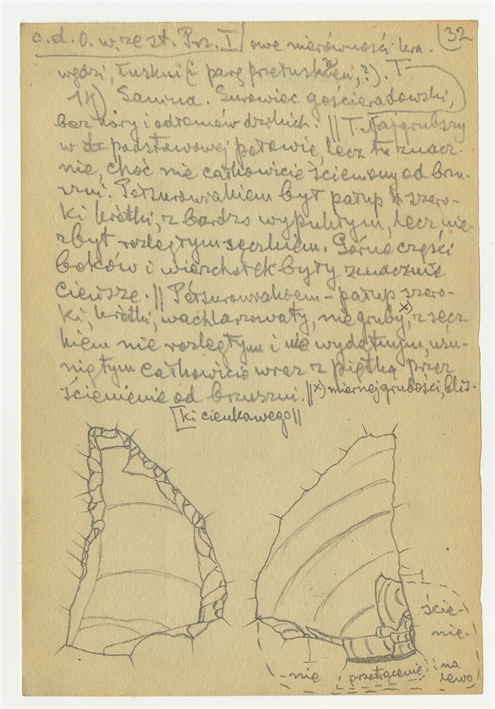 32
c.d.O. w. zest. Prz. I owe nierówności kra-
wędzi, łuskni ( parę przełuskań, ?). T
14). Sanina. Surowiec gościeradowski,
bez kory i odłamów dzikich. || T. Najgrubszy
w podstawowej połowie, lecz tu znacz-
nie, choć nie całkowicie ścieniony od brzu-
szni. Półsurowiakiem był płatup szero-
ki krótki, z bardzo wypukłym, lecz nie-
zbyt rozległym sęczkiem. Górne części
boków i wierzchołek były znacznie
cieńsze. || Półsurowiakiem - płatup szero-
ki, krótki, wachlarzowaty, niegruby x), z sęcz-
kiem nie rozległym i nie wydatnym, usu-
niętym całkowicie wraz z piętką przez
ścienienie od brzuszni. || x) miernej grubości, bliz-
ki cienkawego ||
ście-
nie-
nie przetrącenie i na
lewo